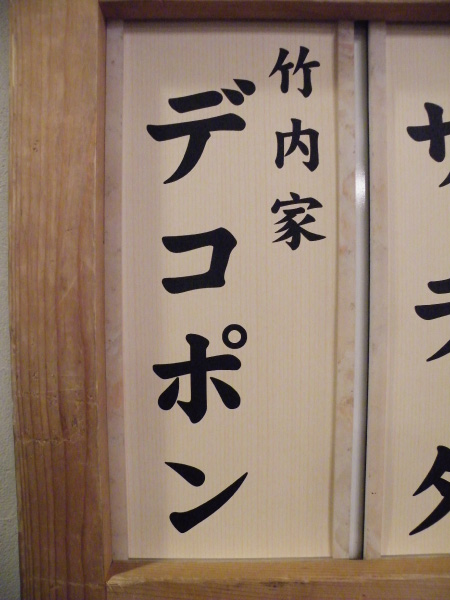 竹内家
デコポン